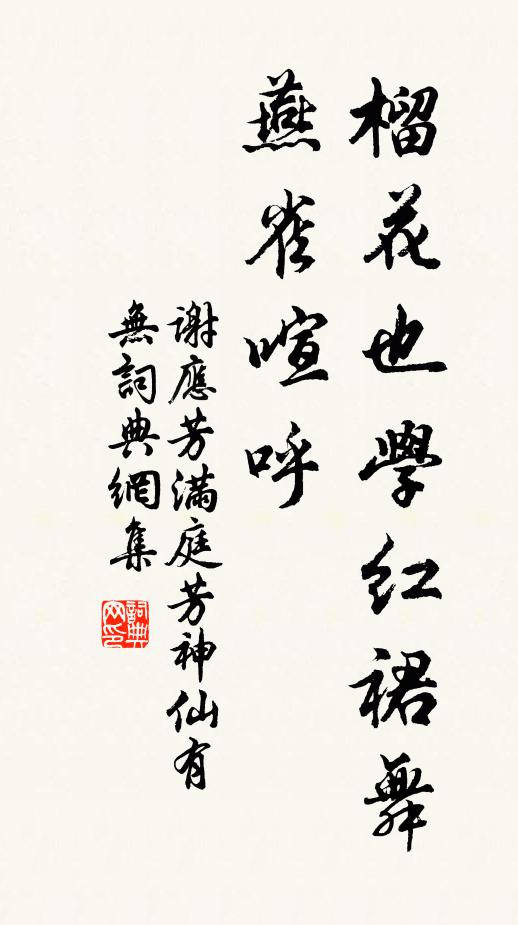 榴花也學紅裙舞
燕雀喧呼
謝應芳滿庭芳神仙有
無詞典網集
詞典网印